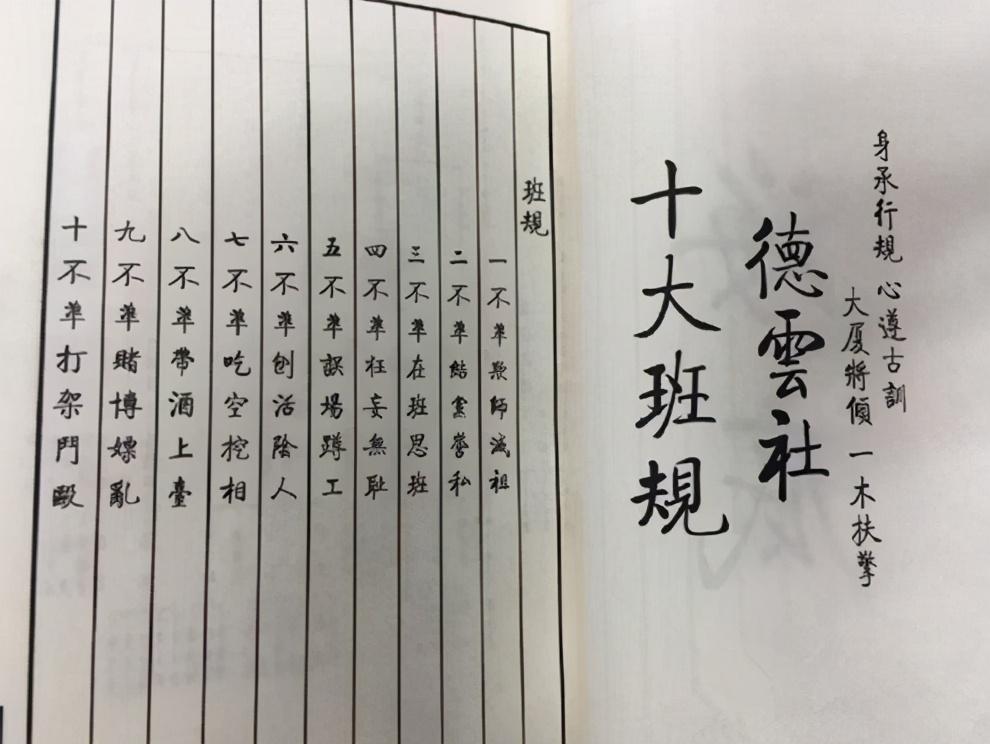 身承行規 心遵古訓
大厦將傾 一木扶擎
德雲社
十大班規
班規
一不準欺師滅祖
二不準結黨營私
三不準在班思班
四不準狂妄無耻
五不準誤場蹲工
六不準刨活陰人
七不準吃空挖相
八不準帶酒上臺
九不準賭博嫖亂
十不準打架鬥毆